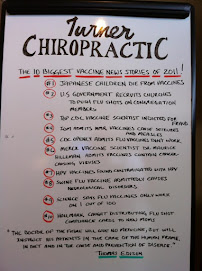 Turner
CHIROPRACTIC
THE 10 BIGGEST VACCINE NEWS STORIES OF 2011!
#1 JAPANESE CHILDREN DIE FROM VACCINES
#2 U.S GOVERNMENT RECRUITS CHURCHES
TO PUSH FLU SHOTS ON CONGREGATION
MEMBERS
#3 TOP CDC VACCINE SCIENTIST INDICTED FOR
FRAUD
#4 ADMITS MMR VACCINES CAUSE SEIZURES
AND MEASLES
#5 CDC ADMITS FLU VACCINES THAT WORK
#6 MERCK VACCINE SCIENTIST DR. MAURICE
HILLEMAN ADMITS VACCINES CONTAIN CANCER-
CAUSING VIRUSES
#7 HPV VACCINES FOUND CONTAMINATED WITH HPV
#8 SWINE FLU VACCINE ADMITTEDLY CAUSES
NEUROLOGICAL DISORDERS
#9 SCIENCE SAYS FLU VACCINES ONLY WORK
ON 1 OUT OF 100
#10 WALMART, TARGET DISTRIBUTING FLU SHOT
COMPLIANCE CARDS TO NEW MOMS
"THE DOCTOR OF THE FUTURE WILL GIVE NO MEDICINE, BUT WILL
INSTRUCT HIS PATIENTS IN THE CARE OF THE HUMAN FRAME,
IN DIET AND IN THE CAUSE AND PREVENTION OF DISEASE."
THOMAS EDISON